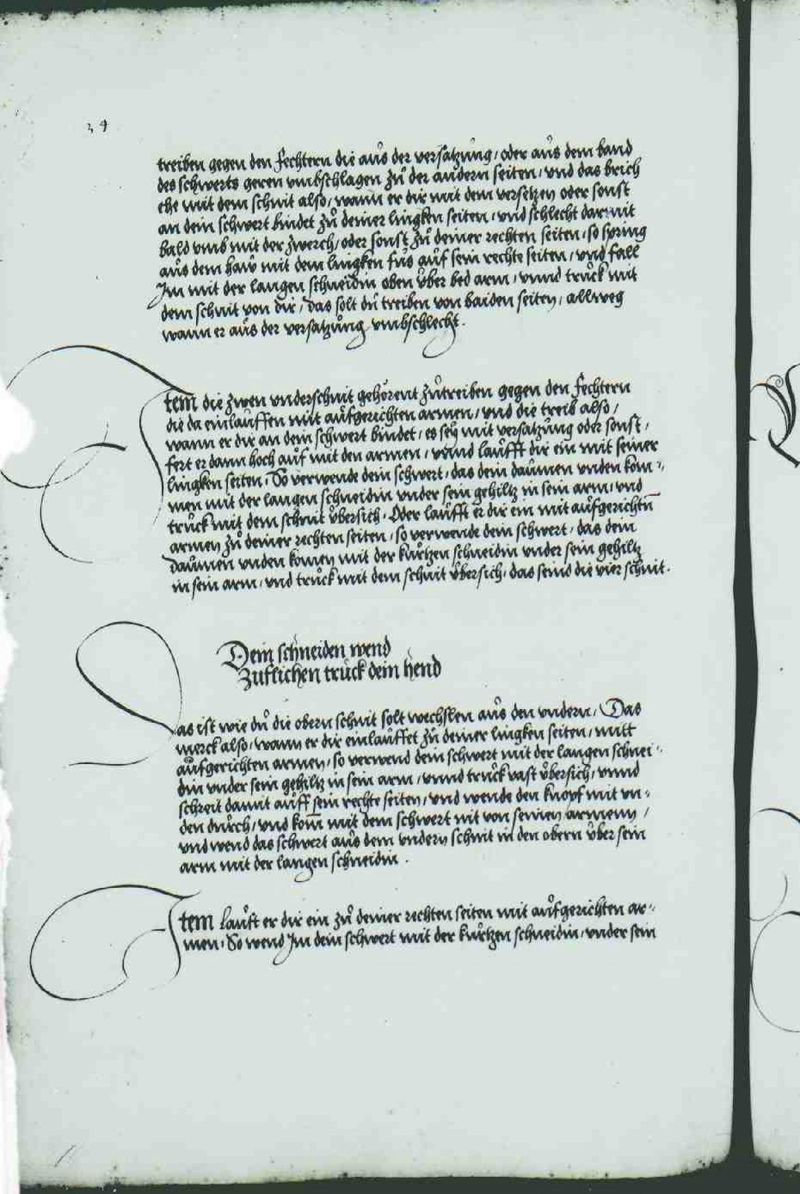 34
treiben gegen den fechtern die aůs der versatzůng, oder aůs dem band
des schwerts geren vmbschlagen zů der andern seiten, vnd das brich
ehe mit dem schnit also, wann er dir mit dem versetzen oder sonst
an dein schwert bindet zů deiner lingken seiten, vnd schlecht darmit
bald vmb mit der zwerch, oder sonst zů deiner rechten seiten, so spring
aůs dem haw mit dem lingken fůs aůf sein rechte seiten, vnd fall
Im mit der langen schneidin oben über bed arm, vnnd trůck mit
dem schnit von dir, das solt dů treiben von baiden seiten, allweg
wann er aůs der versatzůng vmbschlecht.
Item die zwen vnderschnit gehörent zůtreiben gegen den fechtern
die da einlauffen mit aůfgerichten armen, vnd die treib also,
wann er dir an dem schwert bindet, es seÿ mit versatzůng oder sonst,
fert er dann hoch aůf mit den armen, vnnd laůfft dir ein mit seiner
lingken seiten, So verwende dein schwert, das dein daůmen vnden kom-
men mit der langen schneidin vnder sein gehiltz in sein arm, vnd
trůck mit dem schnit übersich, Oder laůfft er dir ein mit aůfgerichtn̄
armen zů deiner rechten seiten, so verwende dein schwert, das dein
daůmen vnden komen mit der kůrtzen schneidin vnder sein gehiltz
in sein arm, vnd trůck mit dem schnit übersich, das seind die vier schnit.
Dein schneiden wend
Zuflichen truck dein hend
Das ist wie dů die obern schnit solt wechslen aůs den vndern, Das
merck also, wann er dir einlaůffet zů deiner lingken seiten, mitt
aůfgerichten armen, so verwend dein schwert mit der langen schnei-
din vnder sein gehiltz in sein arm, vnnd trůck vast übersich, vnnd
schreit damit aůff sein rechte seiten, vnd wende den knopf mit vn-
den důrch, vnd kom̄ mit dem schwert nit von seinen armenn,
vnd wend das schwert aůs dem vndern schnit in den obern über sein
arm mit der langen schneidin.
Item laůft er dir ein zů deiner rechten seiten mit aůfgerichten ar-
men, So wend Im dein schwert mit der kůrtzen schneidin, vnder sein